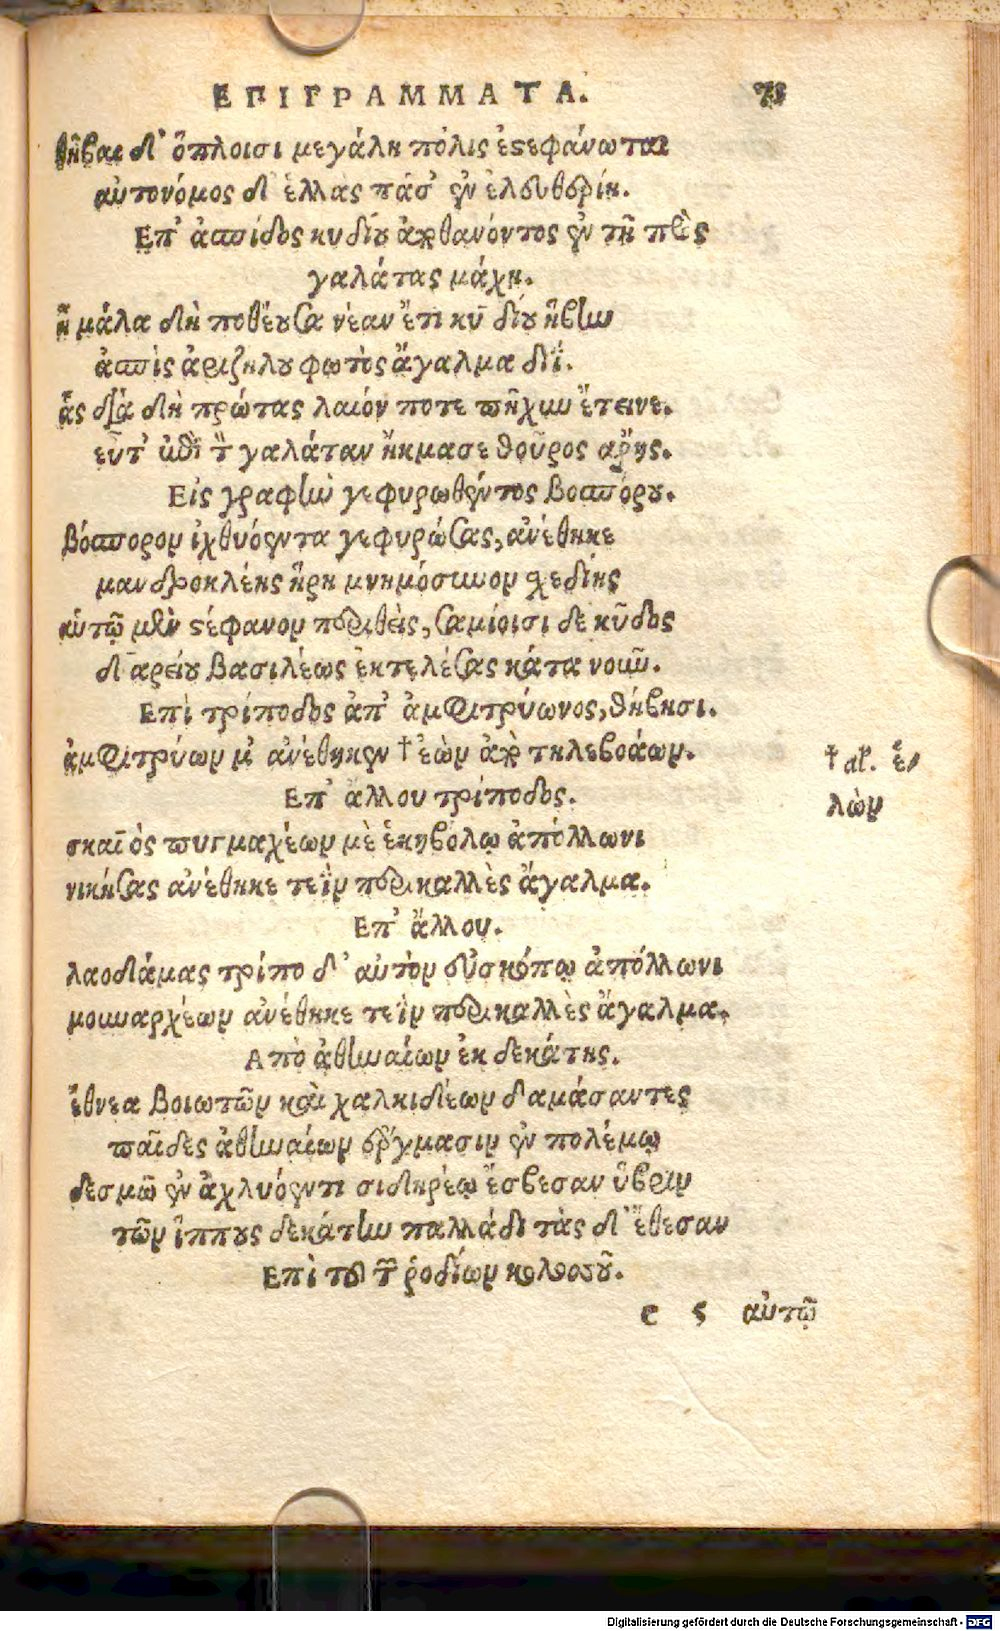 ΕΠΙΓΡΑΜΜΑΤΑ. 73
θῆβαι δ' ὅπλοισι μεγάλη πόλις ἐστεφάνωται
αὐτονόμος δ' ἑλλὰς πᾶσ' ἐν ἐλευθερίῃ.
Επ' ἀσπίδος κυδίου ἀποθανόντος ἐν τῇ πρὸς
γαλάτας μάχῃ.
ἦ μάλα δὴ ποθέουσα νέαν ἔτι κυδίου ἥβην
ἀσπὶς ἀριζήλου φωτὸς ἄγαλμα διΐ.
ἇς διὰ δὴ πρώτας λαιόν ποτε πῆχυν ἔτεινε.
εὖτ' ἐπὶ τ γαλάταν ἤκμασε θοῦρος ἄρης.
Εἰς γραφὴν γεφυρωθέντος βοσπόρου.
βόσπορον ἰχθυόεντα γεφυρώσας, ἀνέθηκε
μανδροκλέης ἥρῃ μνημόσυνον σχεδίης
αὑτῷ μὲν στέφανον περιθεὶς, σαμίοισι δε κῦδος
δαρείου βασιλέως ἐκτελέσας κάτα νοῦν.
Επὶ τρίποδος ἀπ' ἀμφιτρύωνος, θήβησι.
ἀμφιτρύων μ' ἀνέθηκεν † ἐὼν ἀπὸ τηλεβοάων.
† αλ. ἑ
λὼν
Επ' ἄλλου τρίποδος.
σκαῖὸς πυγμαχέων μὲ ἑκηβόλῳ ἀπόλλωνι
νικήσας ἀνέθηκε τεῒν περικαλλὲς ἄγαλμα.
Επ' ἄλλου.
λαοδάμας τρίποδ' αὐτὸν εὐσκόπῳ ἀπόλλωνι
μουναρχέων ἀνέθηκε τεῒν περικαλλὲς ἄγαλμα.
Απὸ ἀθηναίων ἐκ δεκάτης.
ἔθνεα βοιωτῶν καὶ χαλκιδέων δαμάσαντες
παῖδες ἀθηναίων ἔργμασιν ἐν πολέμῳ
δεσμῷ ἐν ἀχλυόεντι σιδηρέῳ ἔσβεσαν ὕβριν
τῶν ἵππους δεκάτην παλλάδι τὰς δ' ἔθεσαν
Επὶ τοῦ τῶν ῥοδίων κολοσοῦ.
e 5 αὐτῷ
Digitalisierung gefördert durch die Deutsche Forschungsgemeinschaft - DFG